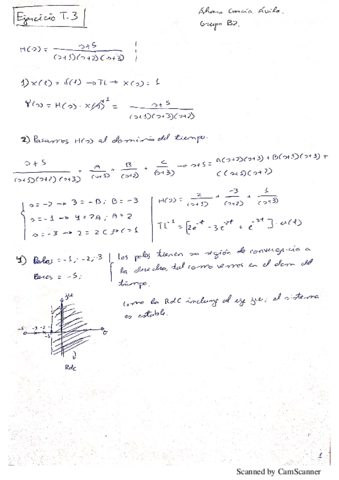 Ejercicio T.3
Álvaro García Ávila.
Grupo B2.
H(s) = s+5 / (s+1)(s+2)(s+3)
1) x(t) = δ(t) → TL → X(s) = 1
Y(s) = H(s) · X(s) = s+5 / (s+1)(s+2)(s+3)
2) Pasamos H(s) al dominio del tiempo.
s+5 / (s+1)(s+2)(s+3) = A/(s+1) + B/(s+2) + C/(s+3) → s+5 = A(s+2)(s+3) + B(s+1)(s+3) +
C(s+1)(s+2)
s=-2 → 3 = -B; B = -3
s=-1 → 4 = 2A; A = 2
s=-3 → 2 = 2C; C = 1
H(s) = 2/(s+1) + -3/(s+2) + 1/(s+3)
TL⁻¹ = [2e^-t - 3e^-2t + e^-3t] · u(t)
Polos = -1; -2; -3
= -5;
los polos tienen su región de convergencia a
la derecha, tal como vemos en el dom del
tiempo.
Como la RdC incluye el eje jω, el sistema
es estable.
RdC
1
Scanned by CamScanner